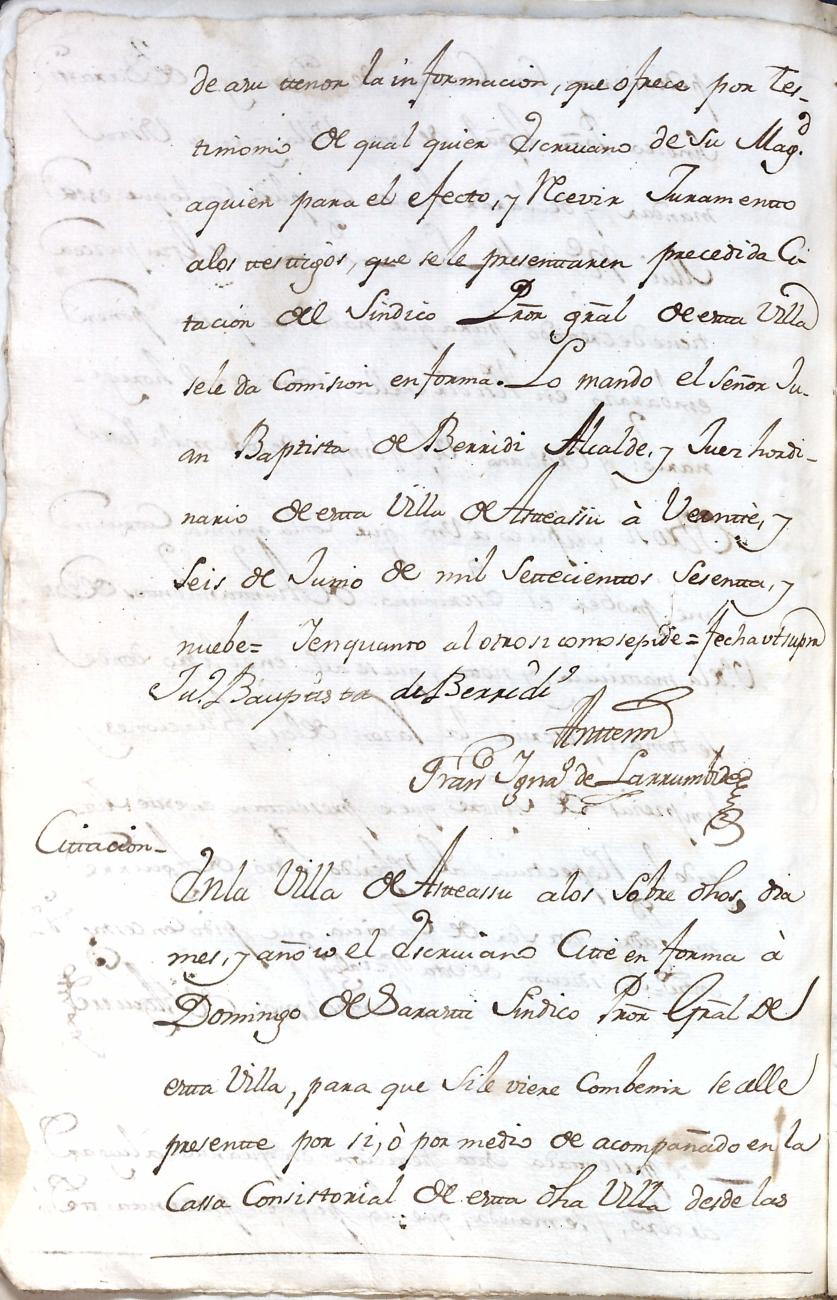 de asu ttenor la informacion, que ofrece por Tes-
timonio de qual quier Escriuano de Su Magd.
aquien para el efecto, y Recevir Juramentto
alos ttesttigos, que sele presenttaren precedida Ci-
tacion del Sindico Pror. gral de estta Villa
sele da Comision en forma. Lo mando el Señor Ju-
an Baptista de Berridi Alcalde, y Juez hordi-
nario de estta Villa de Astteassu à Veintte, y
Seis de Junio de mil Settecienttos Sesentta, y
nuebe= Ienquanto al otro si como se pide= fecha ut supra
Jun. Bauptista de Berridi
Anttemi
Franco Ignao. de Larrumbide
Cittacion-
En la Villa de Astteassu alos Sobre dhos, dia
mes, y año io el Escriuano Citte en forma à
Domingo de Sarastti Sindico Pror Gral de
estta Villa, para que Sile viere Combenir se alle
presentte por si, ò por medio de acompañado en la
Cassa Consistorial de estta dha Villa desde las